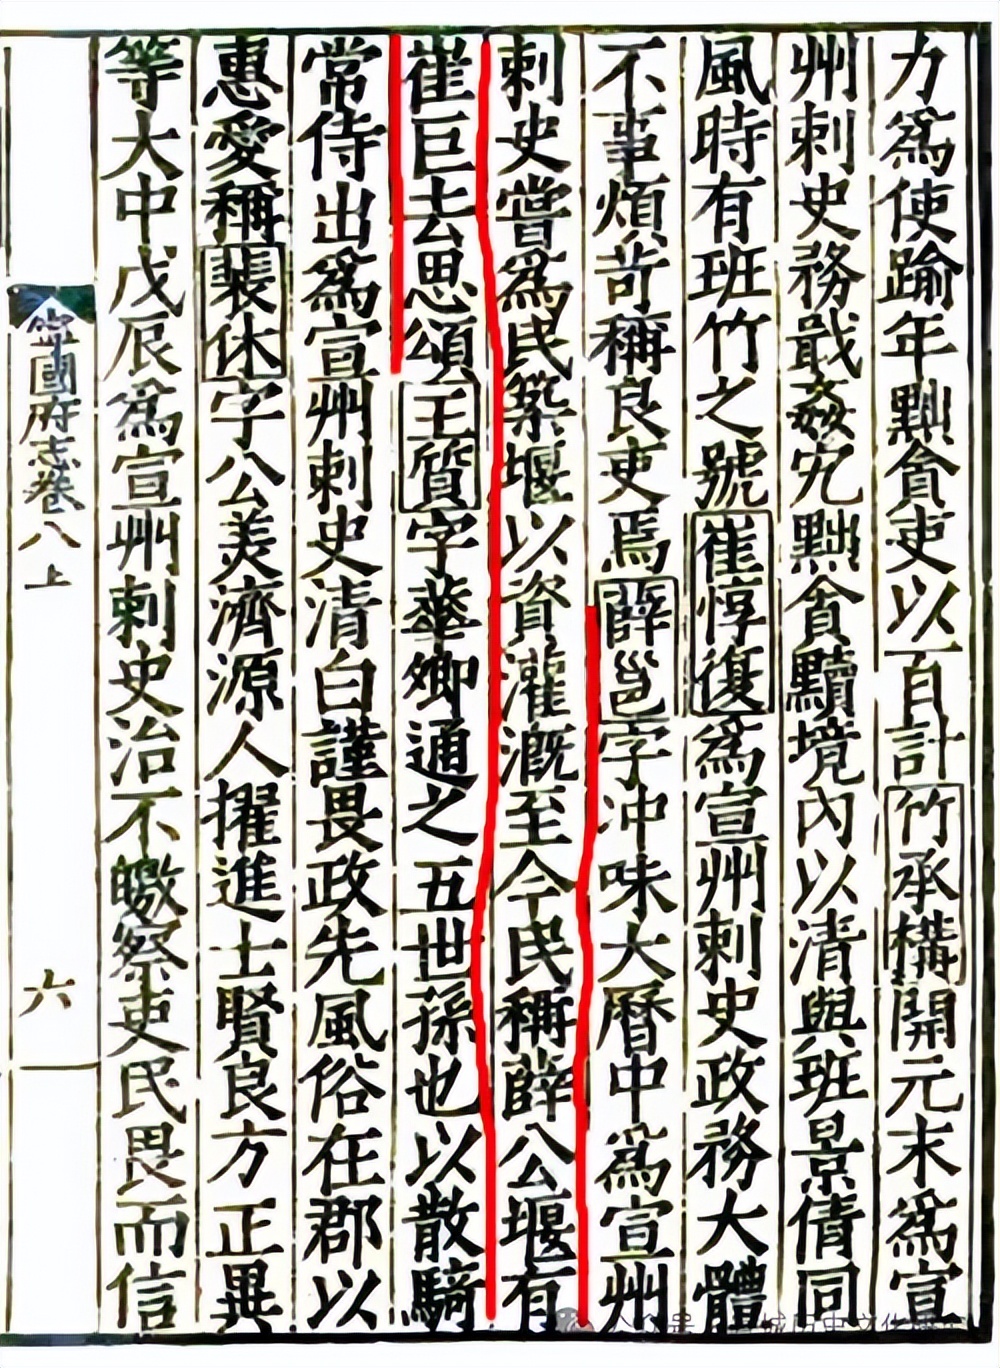 力爲使踰年黜貪吏以百計竹承構開元末爲宣
州刺史務戢姦宄黜貪黷境內以清與班景倩同
風時有班竹之號崔惇復爲宣州刺史政務大體
不事煩苛稱良吏焉薛邕字冲味大曆中爲宣州
刺史嘗爲民築堰以資灌漑至今民稱薛公堰有
崔巨去思頌王質字華卿通之五世孫也以散騎
常侍出爲宣州刺史清白謹畏政先風俗在郡以
惠愛稱裴休字公美濟源人擢進士賢良方正異
等大中戊辰爲宣州刺史治不皦察吏民畏而信
寧國府志卷八上
六